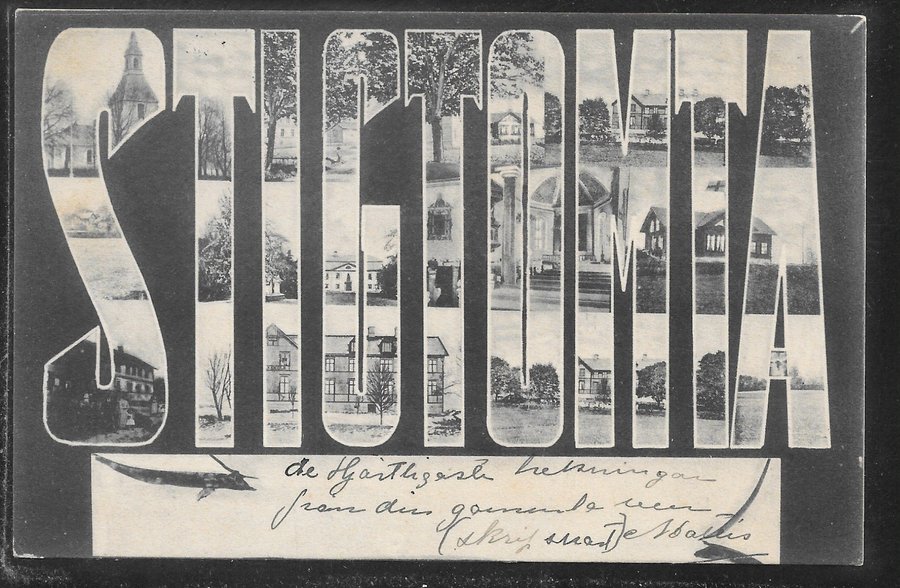 STIGTOMTA
de Hjärtligaste helsningar
från din gammla ven
(skrif snart) Mattis